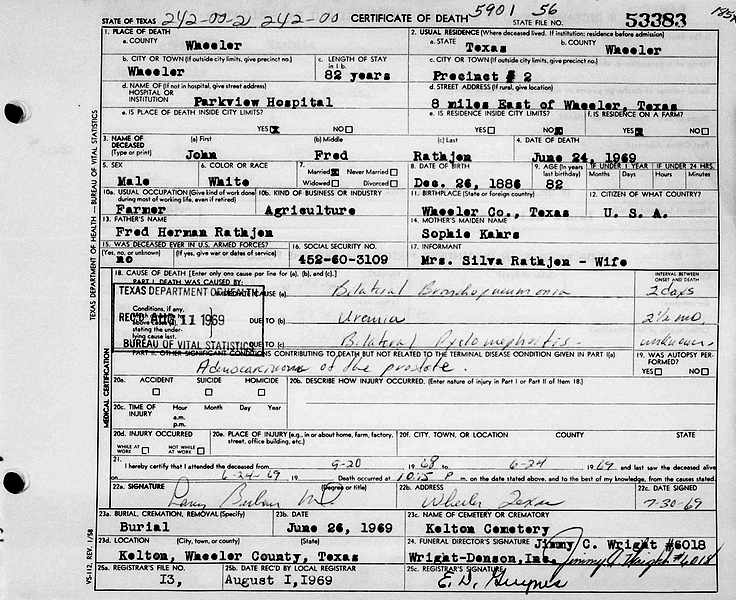 STATE OF TEXAS 242-00-2 242-00 CERTIFICATE OF DEATH 5901 56 STATE FILE NO. 53383
1. PLACE OF DEATH 2. USUAL RESIDENCE (Where deceased lived. If institution: residence before admission)
a. COUNTY Wheeler a. STATE Texas b. COUNTY Wheeler
b. CITY OR TOWN (If outside city limits, give precinct no.) c. LENGTH OF STAY in 1 b. c. CITY OR TOWN (If outside city limits, give precinct no.)
Wheeler 82 years Precinct # 2
d. NAME OF (If not in hospital, give street address) HOSPITAL OR INSTITUTION d. STREET ADDRESS (If rural, give location)
Parkview Hospital 8 miles East of Wheeler, Texas
e. IS PLACE OF DEATH INSIDE CITY LIMITS? e. IS RESIDENCE INSIDE CITY LIMITS? f. IS RESIDENCE ON A FARM?
YES X NO YES NO X YES X NO
3. NAME OF DECEASED (Type or print) (a) First (b) Middle (c) Last 4. DATE OF DEATH
John Fred Rathjen June 24, 1969
5. SEX 6. COLOR OR RACE 7. Married X Never Married Widowed Divorced 8. DATE OF BIRTH 9. AGE (In years last birthday) IF UNDER 1 YEAR IF UNDER 24 HRS.
Months Days Hours Minutes
Male White Dec. 26, 1886 82
10a. USUAL OCCUPATION (Give kind of work done during most of working life, even if retired) 10b. KIND OF BUSINESS OR INDUSTRY 11. BIRTHPLACE (State or foreign country) 12. CITIZEN OF WHAT COUNTRY?
Farmer Agriculture Wheeler Co., Texas U. S. A.
13. FATHER'S NAME 14. MOTHER'S MAIDEN NAME
Fred Herman Rathjen Sophie Kahrs
15. WAS DECEASED EVER IN U.S. ARMED FORCES? 16. SOCIAL SECURITY NO. 17. INFORMANT
(Yes, no, or unknown) (If yes, give war or dates of service)
no 452-60-3109 Mrs. Silva Rathjen - Wife
18. CAUSE OF DEATH [Enter only one cause per line for (a), (b), and (c).] INTERVAL BETWEEN ONSET AND DEATH
PART I. DEATH WAS CAUSED BY:
TEXAS DEPARTMENT OF HEALTH CAUSE (a) Bilateral Bronchopneumonia 2 days
Conditions, if any, above cause (a), stating the underlying cause last.
REC'D AUG 11 1969 DUE TO (b) Uremia 2½ mo.
BUREAU OF VITAL STATISTICS DUE TO (c) Bilateral Pyelonephritis- unknown-
PART II. OTHER SIGNIFICANT CONDITIONS CONTRIBUTING TO DEATH BUT NOT RELATED TO THE TERMINAL DISEASE CONDITION GIVEN IN PART I(a) 19. WAS AUTOPSY PERFORMED?
Adenocarcinoma of the prostate. YES NO
20a. ACCIDENT SUICIDE HOMICIDE 20b. DESCRIBE HOW INJURY OCCURRED. (Enter nature of injury in Part I or Part II of Item 18.)
20c. TIME OF INJURY Hour Month Day Year
a.m.
p.m.
20d. INJURY OCCURRED 20e. PLACE OF INJURY (e.g., in or about home, farm, factory, street, office building, etc.) 20f. CITY, TOWN, OR LOCATION COUNTY STATE
WHILE AT WORK NOT WHILE AT WORK
21. I hereby certify that I attended the deceased from 9-20 1968 to 6-24 1969 and last saw the deceased alive
on 6-24-69 19 Death occurred at 10:15 P m. on the date stated above, and to the best of my knowledge, from the causes stated.
22a. SIGNATURE (Degree or title) 22b. ADDRESS 22c. DATE SIGNED
Wheeler Texas 7-30-69
23a. BURIAL, CREMATION, REMOVAL (Specify) 23b. DATE 23c. NAME OF CEMETERY OR CREMATORY
Burial June 26, 1969 Kelton Cemetery
23d. LOCATION (City, town, or county) (State) 24. FUNERAL DIRECTOR'S SIGNATURE Jimmy C. Wright #6018
Kelton, Wheeler County, Texas Wright-Denson, Inc. Jimmy C Wright #6018
25a. REGISTRAR'S FILE NO. 25b. DATE REC'D BY LOCAL REGISTRAR 25c. REGISTRAR'S SIGNATURE
13, August 1, 1969
TEXAS DEPARTMENT OF HEALTH — BUREAU OF VITAL STATISTICS
MEDICAL CERTIFICATION
VS-112, REV. 1/58